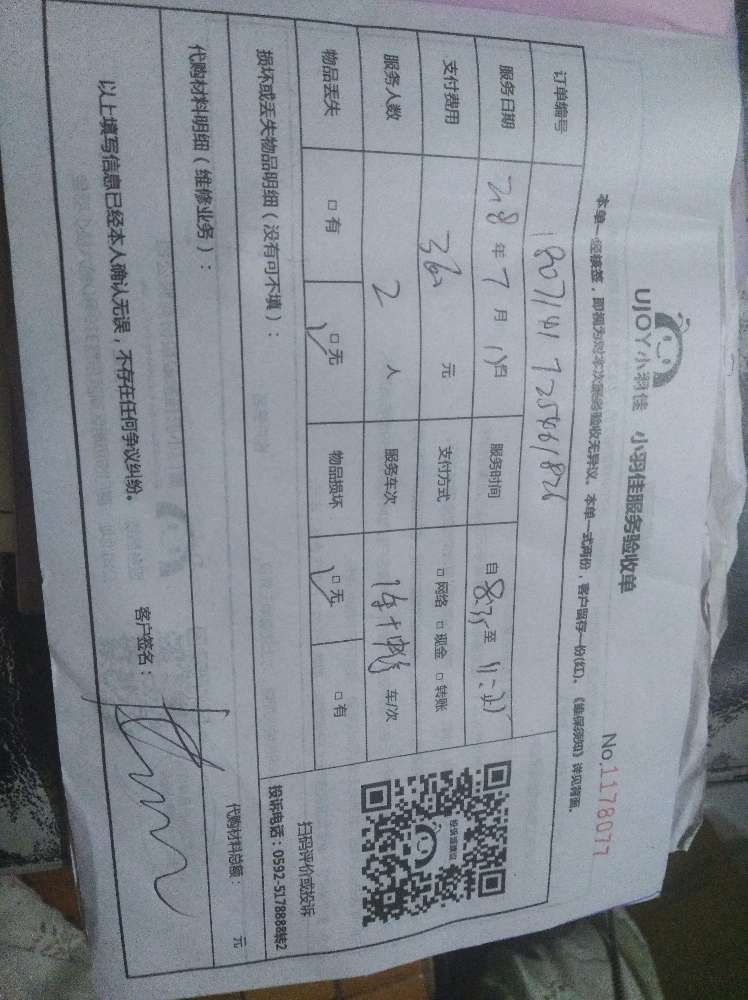 UJOY小羽佳 小羽佳服务验收单 No.1178077
本单一经接签，即视为对本次服务验收无异议。本单一式两份，客户留存一份(红)。《维保须知》详见背面。
订单编号
服务日期 年 7 月 日 服务时间 自 8:35 至
支付费用 元 支付方式 □ 网络 □ 现金 □ 转账
服务人数 2 人 服务车次 车/次
物品丢失 □ 有 □ 无 物品损坏 □ 无 □ 有
损坏或丢失物品明细（没有可不填）：
投诉建议
扫码评价或投诉
投诉电话：0592-5178888转2
代购材料明细（维修业务）： 代购材料总额： 元
以上填写信息已经本人确认无误，不存在任何争议纠纷。 客户签名：